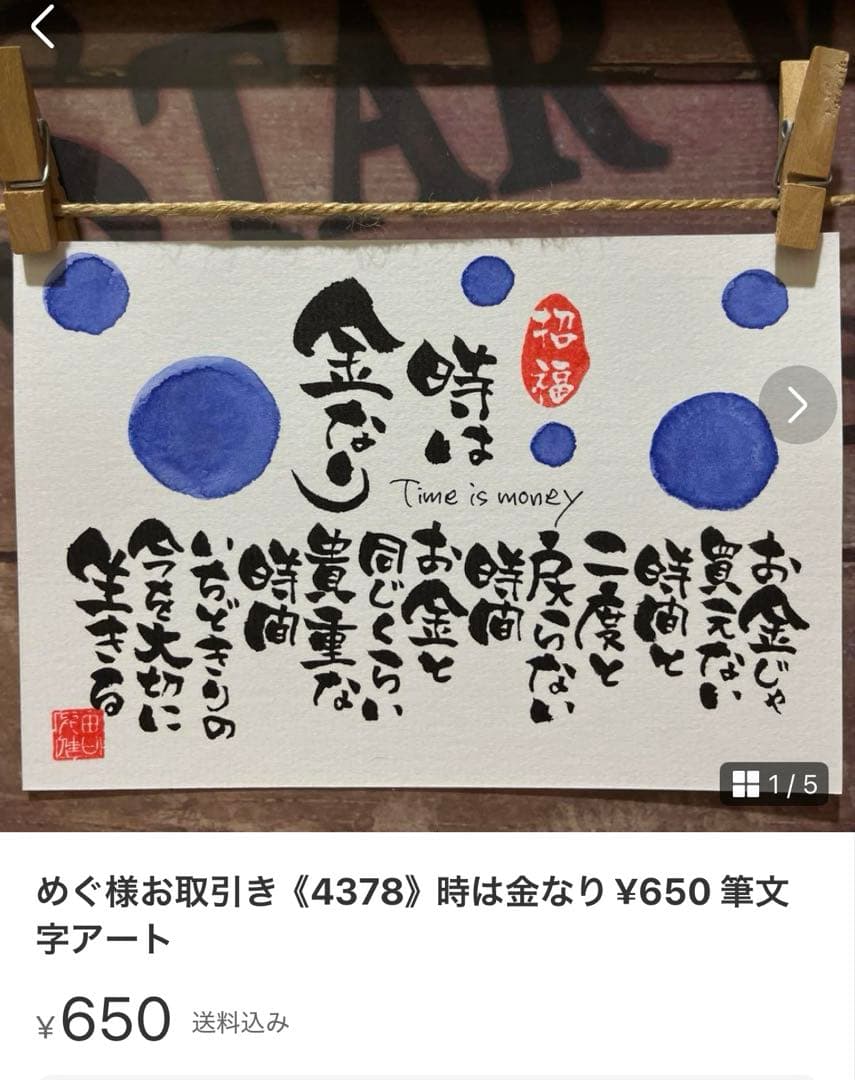 STAR
招福
時は
金なり
Time is money
お金じゃ
買えない
時間と
二度と
戻らない
時間
お金と
同じくらい
貴重な
時間
いちどきりの
今を大切に
生きる
1/5
めぐ様お取引き《4378》時は金なり¥650 筆文
字アート
¥650 送料込み